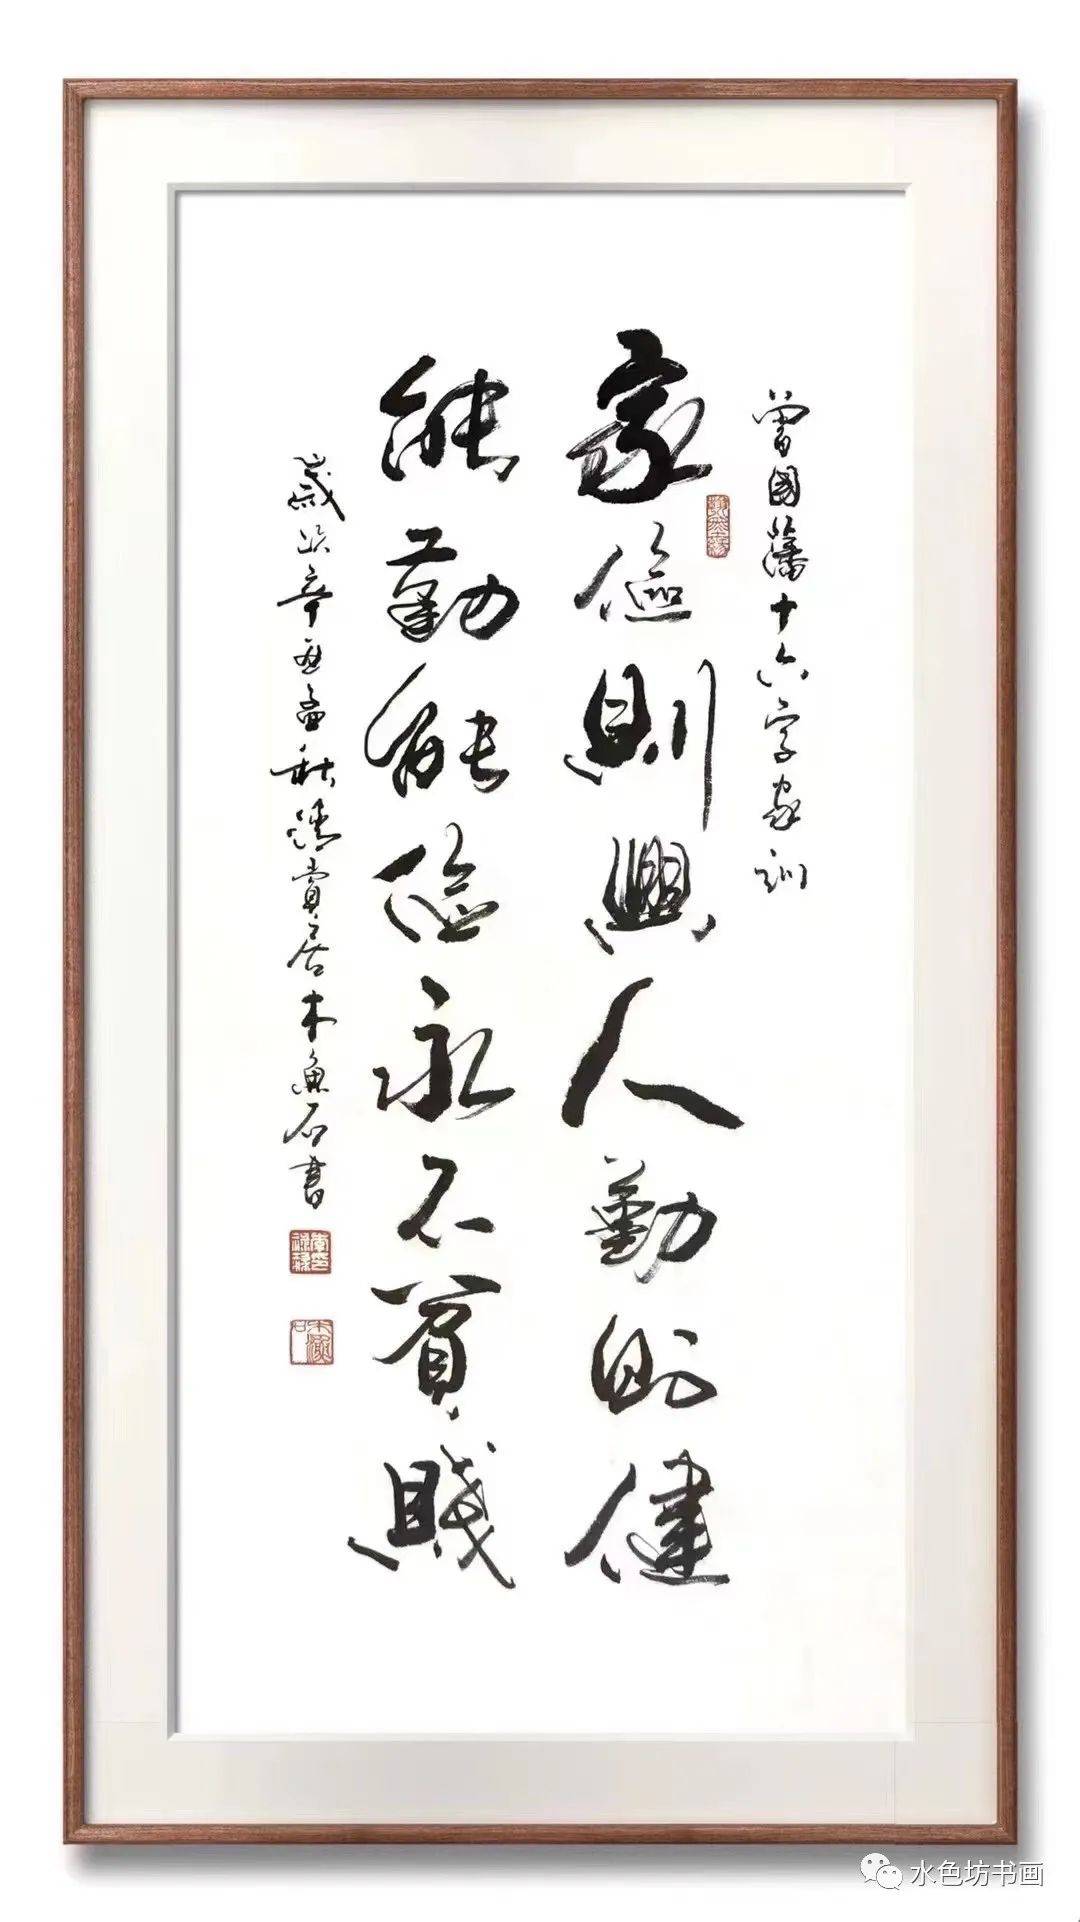 曾國藩十六字家訓
家儉則興人勤則健
能勤能儉永不貧賤
歲次辛丑孟秋清賞居木魚石書
水色坊书画